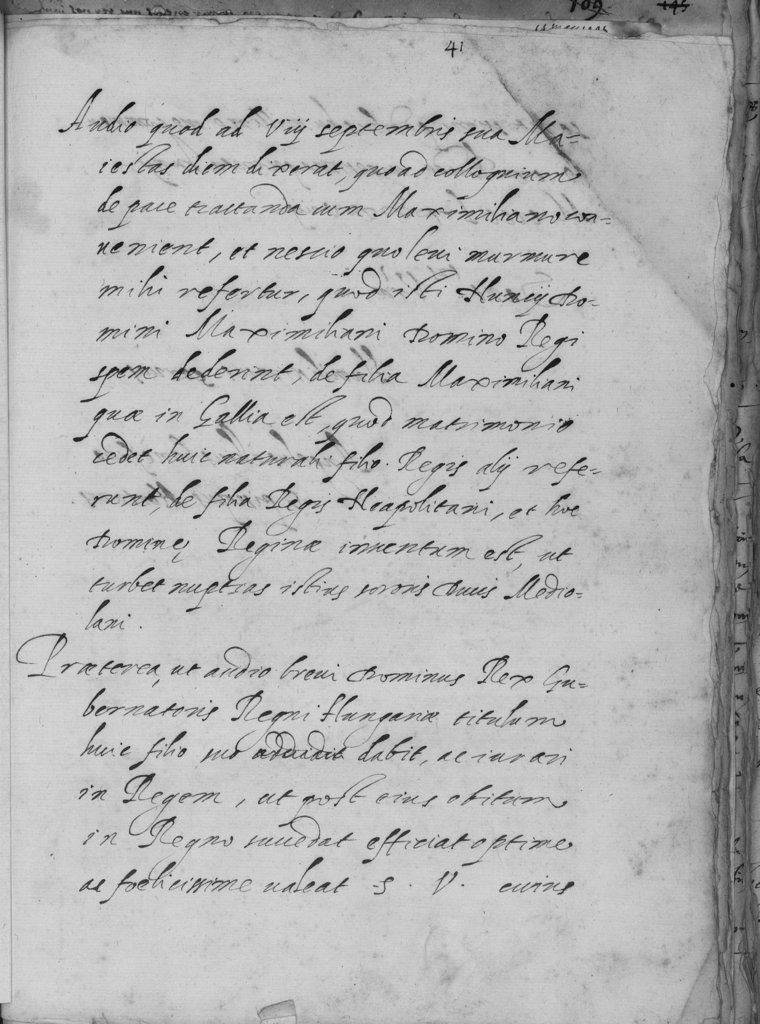 109 145
41
Audio quod ad Viij septembris sua Ma-
iestas diem dixerat, quo ad colloquium
de pace tractanda cum Maximiliano con-
uenient, et nescio quo leui murmure
mihi refertur, quod isti Nuncij Do-
mini Maximiliani Domino Regi
spem dederint, de filia Maximiliani
quæ in Gallia est, quod matrimonio
cedet huic naturali filio Regis alij refe-
runt, de filia Regis Neapolitani, et hoc
Dominę Reginæ inuentum est, ut
turbet nuptias istius sororis Ducis Medio-
lani.
Præterea, ut audio breui Dominus Rex Gu-
bernatoris Regni Hungariæ titulum
huic filio suo dabit, ac iurari
in Regem, ut post eius obitum
in Regno succedat efficiat optime
ac foelicissime ualeat S. V. cuius